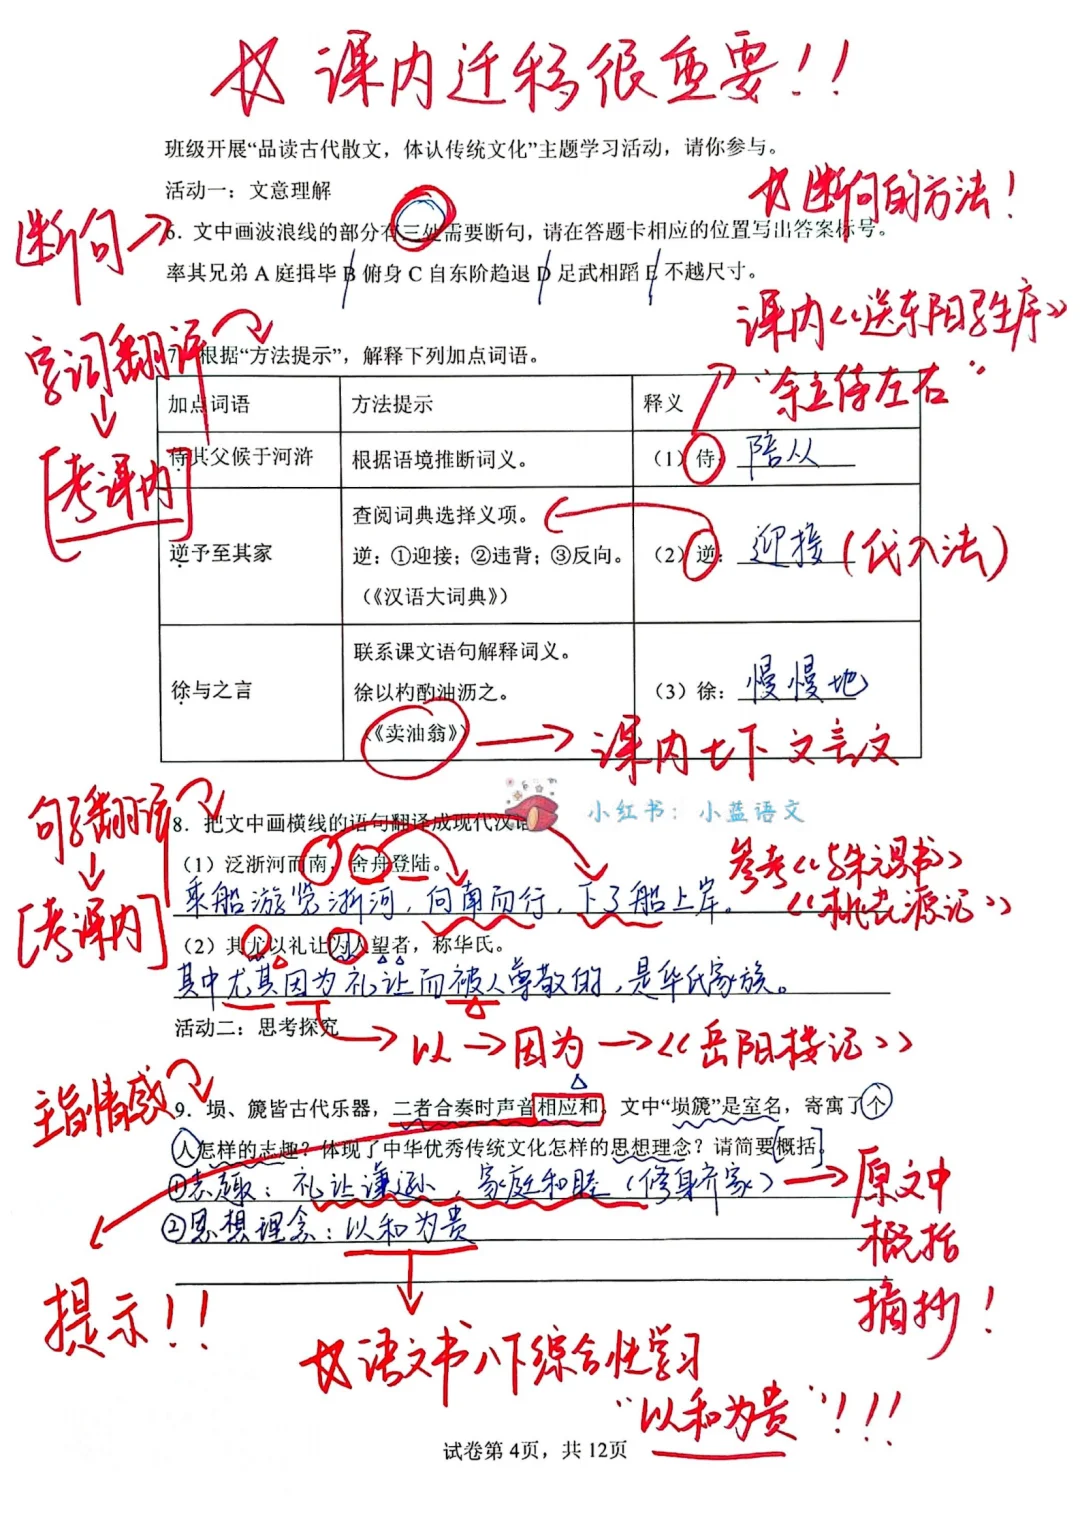 课内迁移很重要！！
班级开展“品读古代散文，体认传统文化”主题学习活动，请你参与。
活动一：文意理解
断句的方法！
断句
6．文中画波浪线的部分有三处需要断句，请在答题卡相应的位置写出答案标号。
率其兄弟 A 庭揖毕 B 俯身 C 自东阶趋退 D 足武相蹈 E 不越尺寸。
课内《送东阳马生序》
“余立侍左右”
字词翻译
[考课内]
7．根据“方法提示”，解释下列加点词语。
加点词语 方法提示 释义
侍其父候于河浒 根据语境推断词义。 （1）侍：陪从
查阅词典选择义项。
逆予至其家 逆：①迎接；②违背；③反向。 （2）逆：迎接（代入法）
（《汉语大词典》）
联系课文语句解释词义。
徐与之言 徐以杓酌油沥之。 （3）徐：慢慢地
《卖油翁》
课内七下文言文
小红书：小蓝语文
句子翻译
[考课内]
8．把文中画横线的语句翻译成现代汉语
（1）泛浙河而南，舍舟登陆。
乘船游览浙河，向南而行，下了船上岸。
参考《与朱元思书》
《桃花源记》
（2）其尤以礼让为人望者，称华氏。
其中尤其因为礼让而被人尊敬的，是华氏家族。
以→因为→《岳阳楼记》
活动二：思考探究
主旨情感
9．埙、篪皆古代乐器，二者合奏时声音相应和。文中“埙篪”是室名，寄寓了个
人怎样的志趣？体现了中华优秀传统文化怎样的思想理念？请简要概括。
①志趣：礼让谦逊，家庭和睦（修身齐家）
②思想理念：以和为贵
原文中
概括
摘抄！
提示！！
语文书八下综合性学习
“以和为贵”！！！
试卷第 4页，共 12页